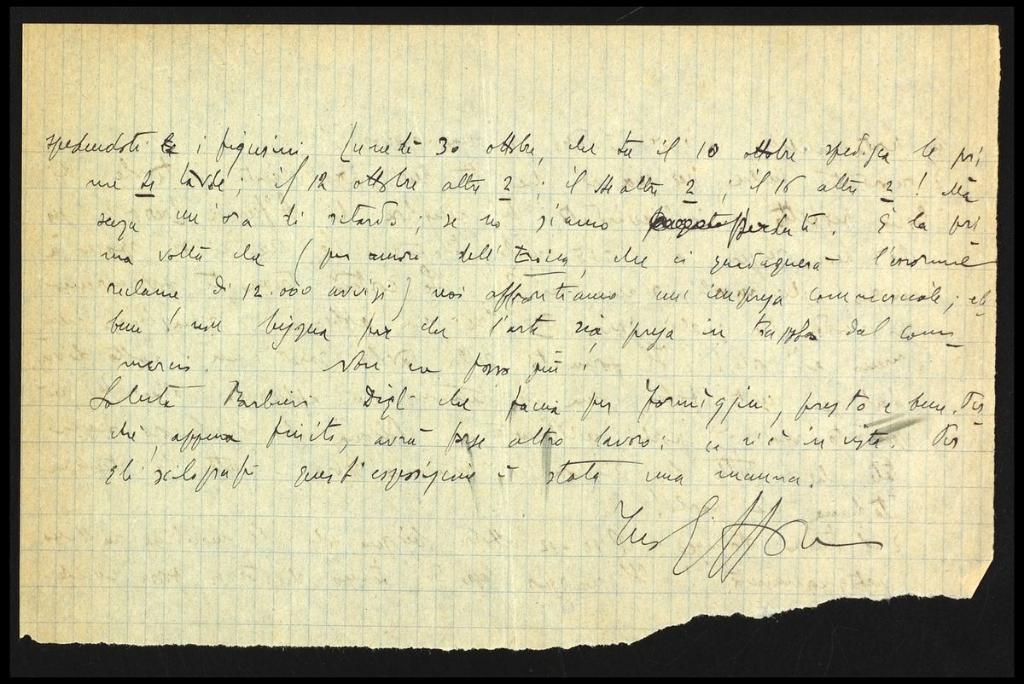 spedendoti i figurini, lunedì 30 ottobre, che tu il 10 ottobre spedisca le pri
me 2 tavole; il 12 ottobre altre 2; il 14 altre 2; il 16 altre 2! Ma
senza un'ora di ritardo; se no siamo perduti. È la pri
ma volta che (per amore dell' che ci guadagnerà l'enorme
reclame di 12.000 avvisi) noi affrontiamo un'impresa commerciale; eb
bene! non bisogna per che l'arte sia presa in dal com
mercio. Non ne posso più!
Saluta Barbieri. Digli che faccia per Formiggini, presto e bene. Per
chè, appena finito, avrà altro lavoro: ce n'è in vista. Per
gli xilografi quest'esposizione è stata una manna.
Tuo